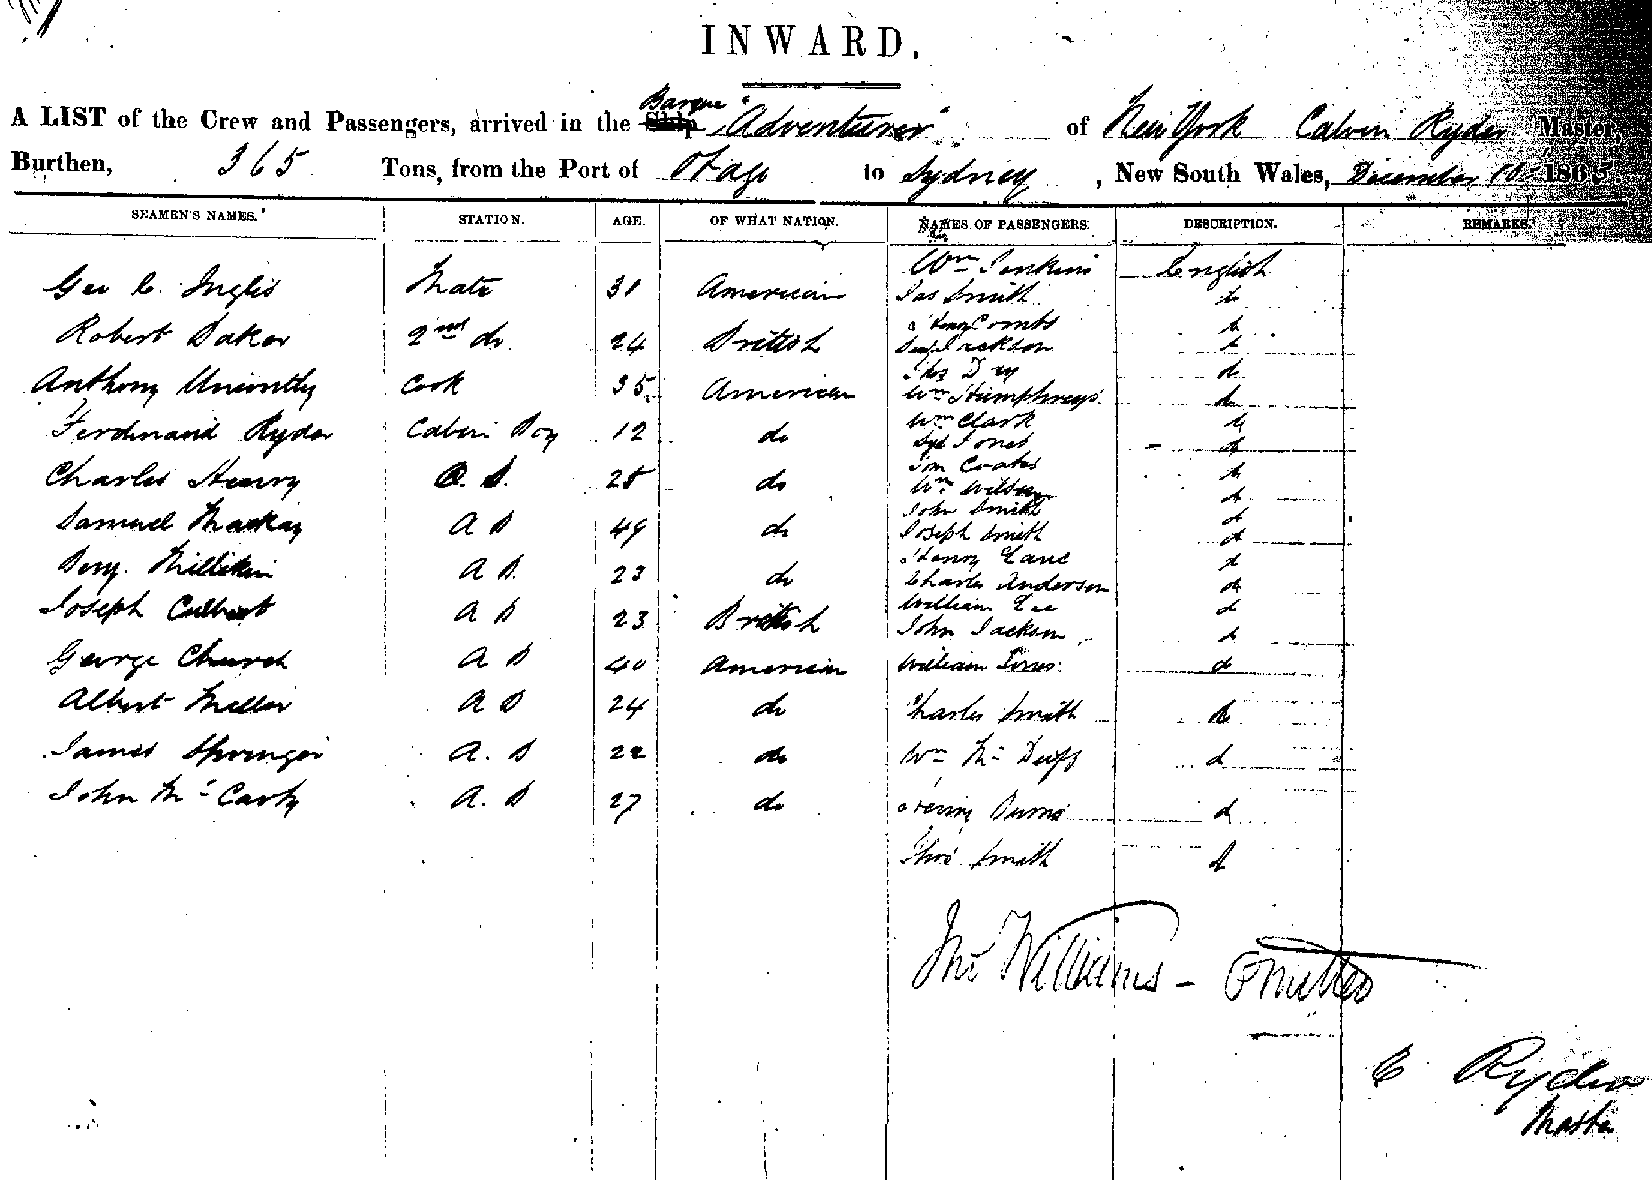 INWARD.
A LIST of the Crew and Passengers, arrived in the Ship Barque "Adventurer" of New York Calvin Ryder Master
Burthen, 365 Tons, from the Port of Otago to Sydney, New South Wales, December 10 1865
SEAMEN'S NAMES. STATION. AGE. OF WHAT NATION. NAMES OF PASSENGERS. DESCRIPTION. REMARKS.
Wm Jenkins English
Geo C. Inglis Mate 31 American
Jas Smith do
Henry Combs do
Robert Baker 2nd do 24 British
Jackson do
Anthony Cook 35 American
Wm Humphreys do
Wm Clark do
Ferdinand Ryder Cabin Boy 12 do
Jones do
Coates do
Charles Henry O. S. 25 do
Wm Wilson do
John Smith do
Samuel Mackay A B 49 do
Joseph Smith do
Henry Lane do
Benj. Milliken A B. 23 do
Charles Anderson do
William Lee do
Joseph Culbert A B 23 British
John Jackson do
George Church A B 40 American
William Jones do
Albert Miller A B 24 do
Charles Smith do
James Springer A. B 22 do
Wm Mc Duff do
John Mc Carty A. B 27 do
Henry Burns do
Thos Smith do
Jno Williams - Omitted
C Ryder
Master